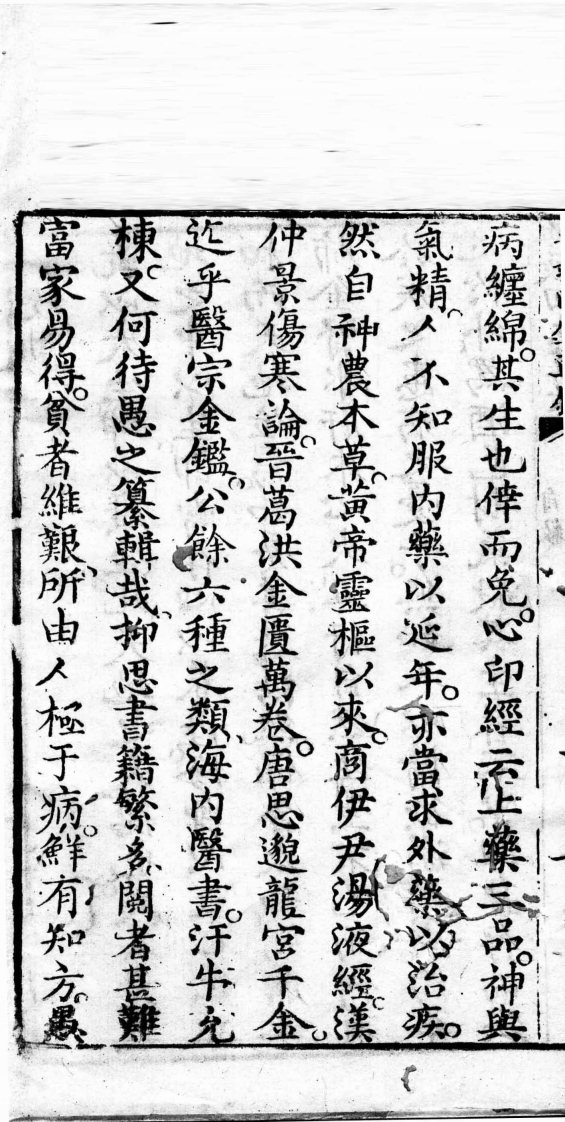 病纏綿。其生也倖而免。心印經云上藥三品。神與
氣精。人不知服内藥以延年。亦當求外藥以治疾。
然自神農本草。黃帝靈樞以來。商伊尹湯液經。漢
仲景傷寒論。晉葛洪金匱萬卷。唐思邈龍宮千金。
迄乎醫宗金鑑。公餘六種之類、海内醫書。汗牛充
棟。又何待愚之纂輯哉、抑思書籍繁多、閱者甚難
富家易得。貧者維艱、所由人極于病。鮮有知方。愚